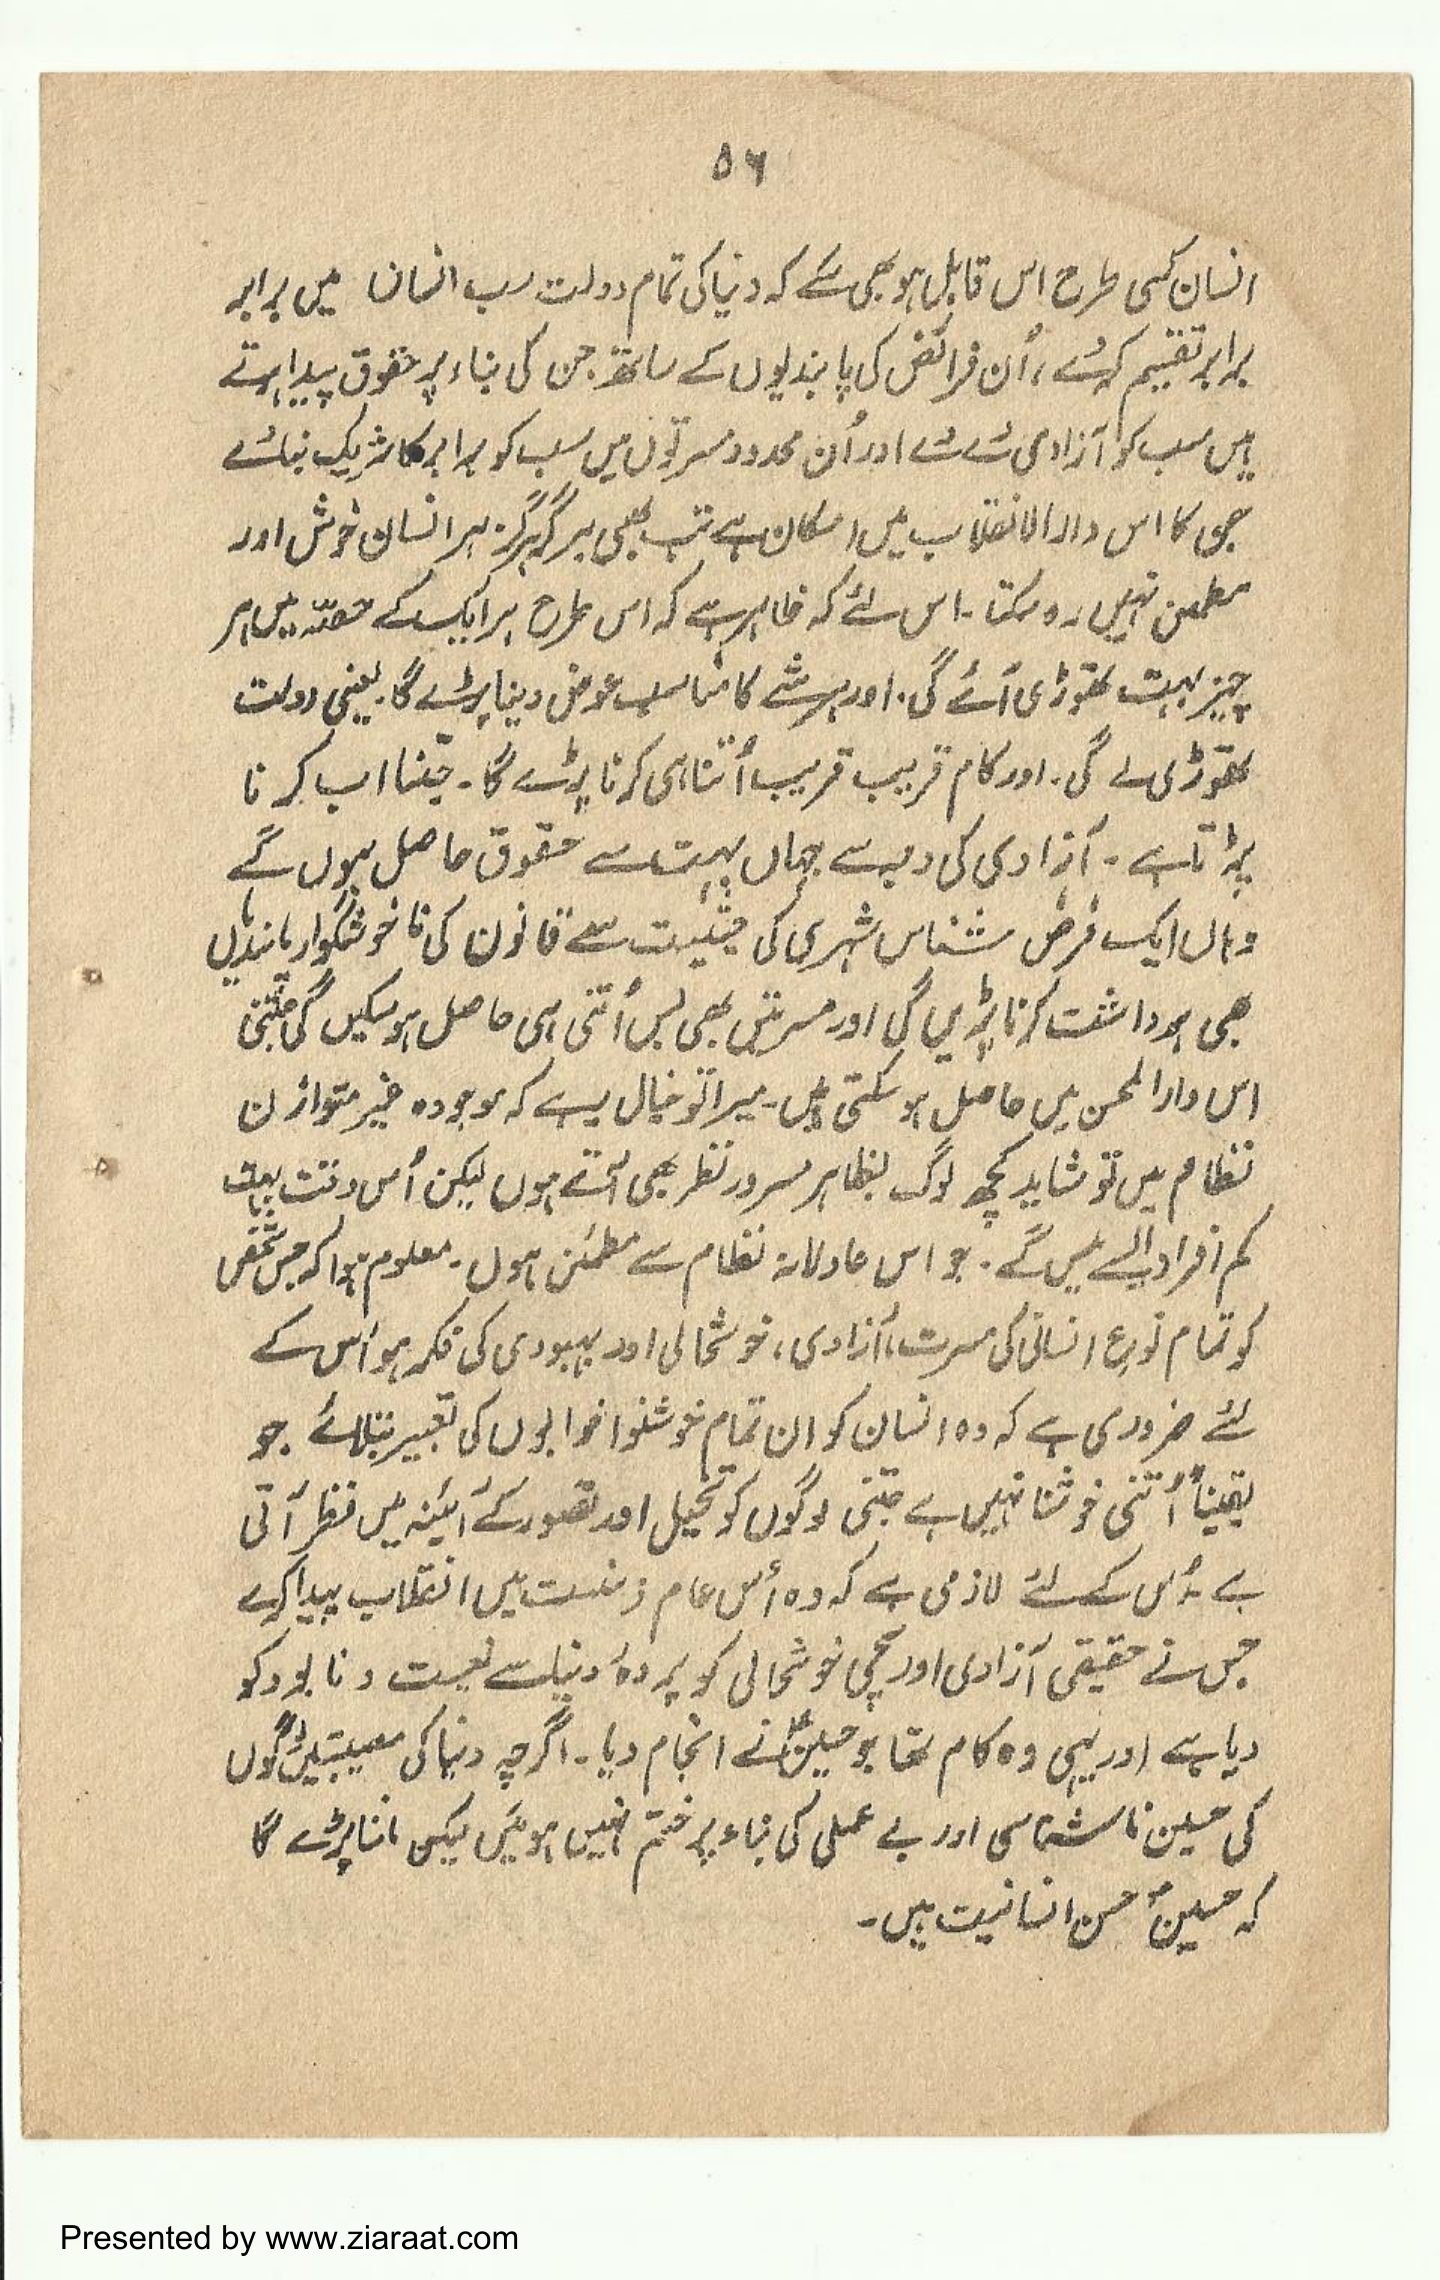 ۵۶
انسان کسی طرح اس قابل ہو بھی سکے کہ دنیا کی تمام دولت سب انسان میں برابر
برابر تقسیم کر دے، اُن فرائض کی پابندیوں کے ساتھ جن کی بناء پر حقوق پیدا ہوتے
ہیں سب کو آزادی دے دے اور اُن محدود مسرتوں میں سب کو برابر کا شریک بنا دے
جن کا اس دارالانقلاب میں امکان ہے تب بھی ہرگز ہرگز ہر انسان خوش اور
مطمئن نہیں رہ سکتا۔ اس لئے کہ ظاہر ہے کہ اس طرح ہر ایک کے حصّہ میں ہر
چیز بہت تھوڑی آئے گی۔ اور ہر شے کا مناسب عوض دینا پڑے گا۔ یعنی دولت
تھوڑی ملے گی۔ اور کام قریب قریب اُتنا ہی کرنا پڑے گا۔ جتنا اب کرنا
پڑتا ہے۔ آزادی کی وجہ سے جہاں بہت سے حقوق حاصل ہوں گے
وہاں ایک فرض شناس شہری کی حیثیت سے قانون کی ناخوشگوار پابندیاں
بھی برداشت کرنا پڑیں گی اور مسرتیں بھی بس اُتنی ہی حاصل ہو سکیں گی جتنی
اس دارالمحن میں حاصل ہو سکتی ہیں۔ میرا تو خیال ہے کہ موجودہ غیر متوازن
نظام میں تو شاید کچھ لوگ بظاہر مسرور نظر بھی آتے ہوں لیکن اُس وقت بہت
کم افراد ایسے ملیں گے۔ جو اس عادلانہ نظام سے مطمئن ہوں۔ معلوم ہوا کہ جس شخص
کو تمام نوع انسانی کی مسرت، آزادی، خوشحالی اور بہبودی کی فکر ہو اُس کے
لئے ضروری ہے کہ وہ انسان کو ان تمام خوشنوا خوابوں کی تعبیر بتلائے جو
یقیناً اُتنی خوشنا نہیں ہے جتنی لوگوں کو تخیل اور تصور کے آئینہ میں نظر آتی
ہے۔ اُس کے لئے لازمی ہے کہ وہ اُس عام ذہنیت میں انقلاب پیدا کرے
جس نے حقیقی آزادی اور سچی خوشحالی کو پردۂ دنیا سے نیست و نابود کو
دیا ہے اور یہی وہ کام تھا جو حسینؑ نے انجام دیا۔ اگرچہ دنیا کی مصیبتیں لوگوں
کی حسین ناشناسی اور بے عملی کی بناء پر ختم نہیں ہوئیں لیکن ماننا پڑے گا
کہ حسینؑ محسن انسانیت ہیں۔
Presented by www.ziaraat.com